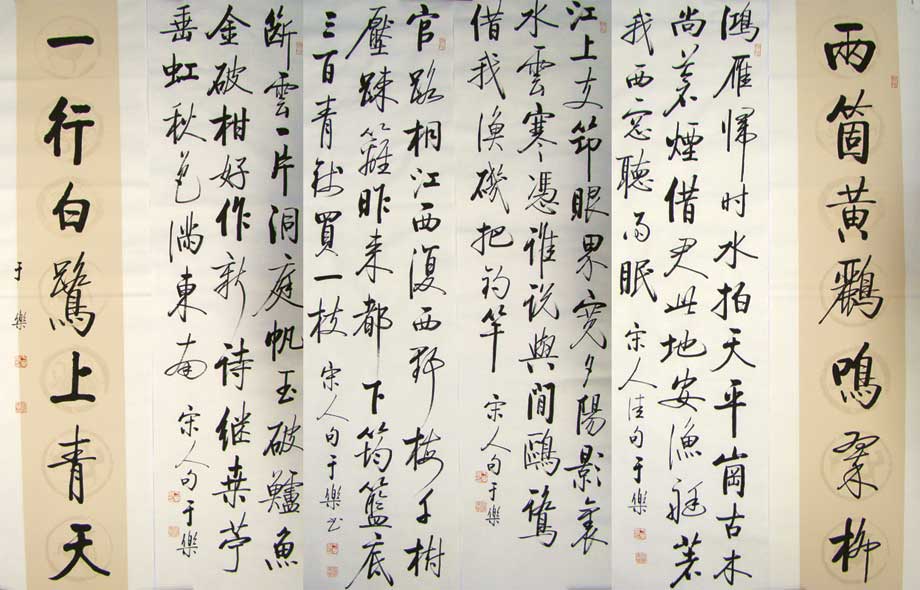 兩箇黃鸝鳴翠柳
鴻雁歸时水拍天平崗古木
尚蒼煙借君此地安漁艇著
我西窓聽雨眠
宋人佳句于樂
江上支筇眼界寬夕陽影裏
水雲寒憑誰說與閒鷗鷺
借我漁磯把釣竿
宋人句于樂
官路桐江西復西野梅千樹
壓踈籬昨来都下筠籃底
三百青錢買一枝
宋人句于樂书
斷雲一片洞庭帆玉破鱸魚
金破柑好作新詩継桑苧
垂虹秋色滿東南
宋人句于樂
一行白鷺上青天
于樂